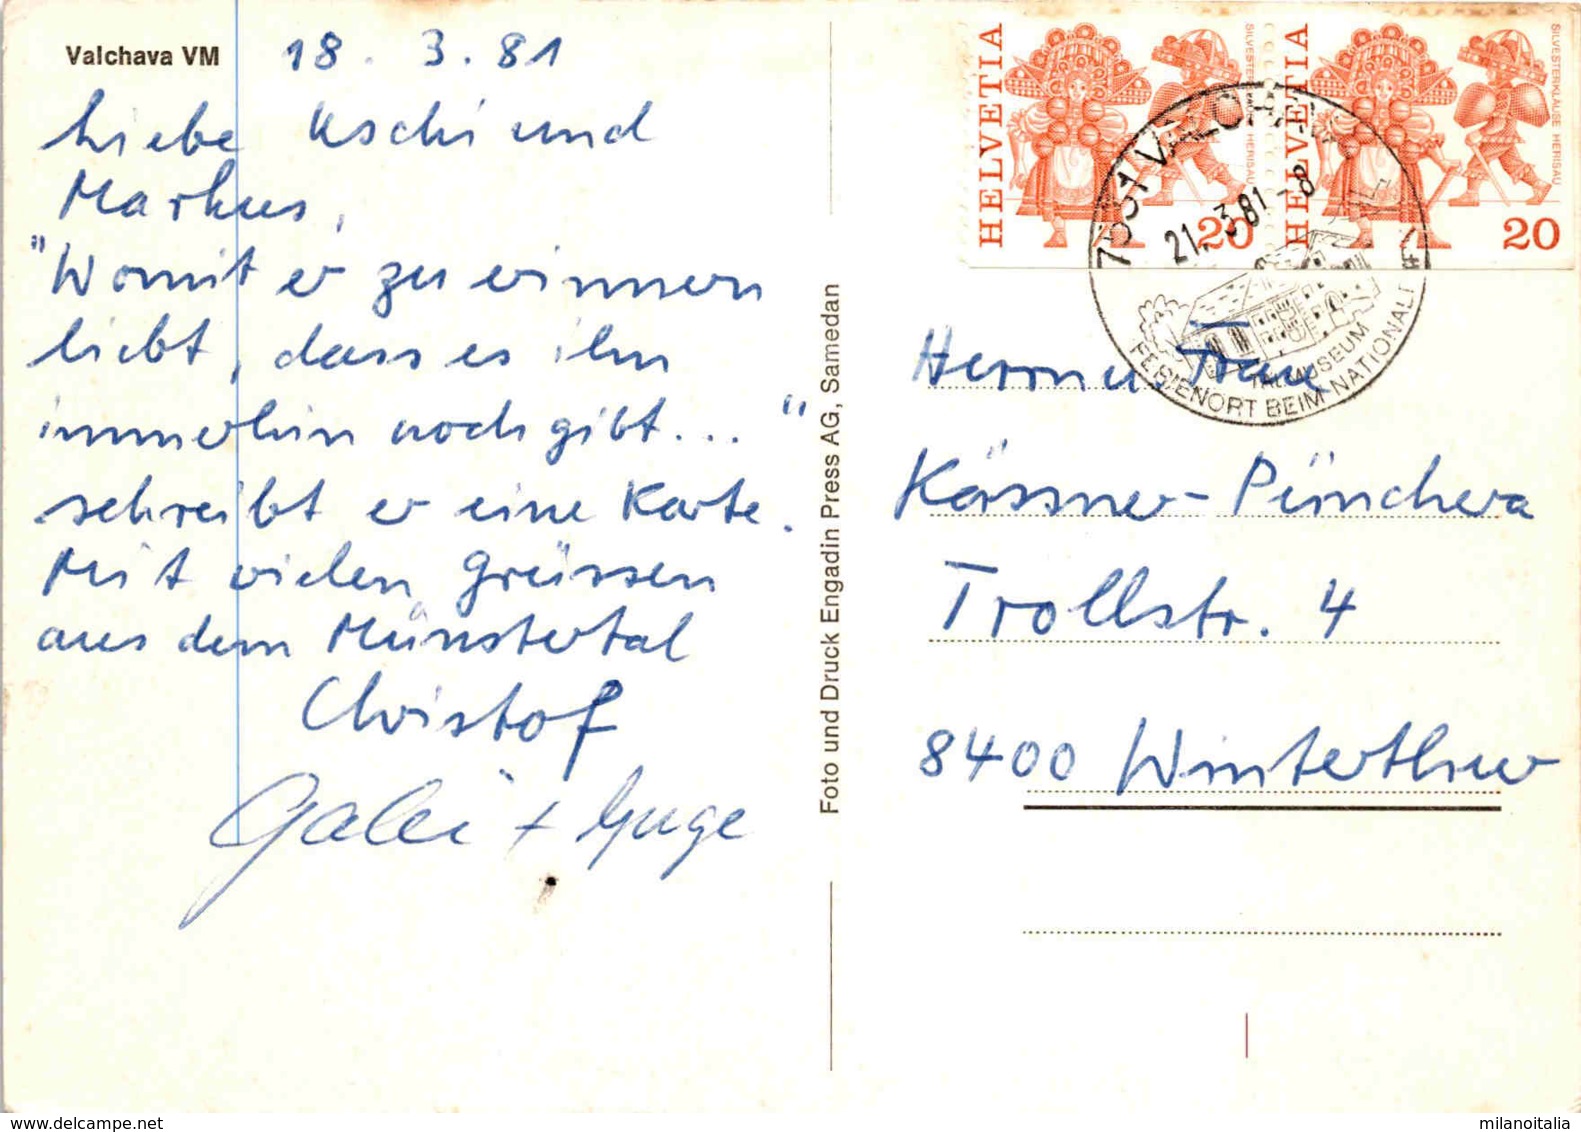 Valchava VM
18. 3. 81
Liebe Uschi und
Markus,
"Womit er zu erinnern
liebt, dass es ihn
immerhin noch gibt..."
schreibt er eine Karte.
Mit vielen Grüssen
aus dem Münstertal
Christof
+
Foto und Druck Engadin Press AG, Samedan
HELVETIA
SILVESTERKLÄUSE HERISAU
20
HELVETIA
SILVESTERKLÄUSE HERISAU
20
7531 VALCHAVA
21. 3.81 - 8
TALMUSEUM
FERIENORT BEIM NATIONAL
Herrn u Frau
Kässner-Püncherа
Trollstr. 4
8400 Winterthur
milanoitalia